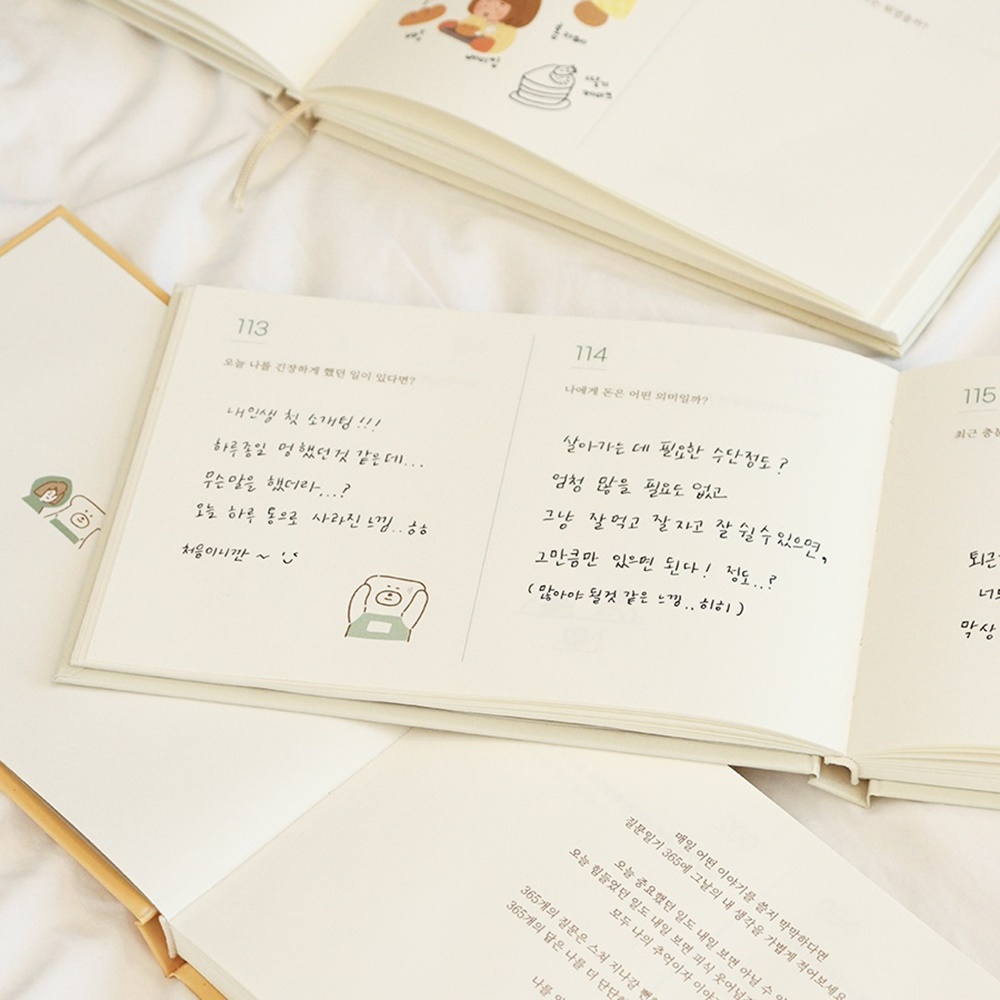 딸기
113
오늘 나를 긴장하게 했던 일이 있다면?
내 인생 첫 소개팅!!!
하루종일 멍했던것 같은데...
무슨말을 했더라...?
오늘 하루 통으로 사라진 느낌..하하
처음이니깐 ~
114
나에게 돈은 어떤 의미일까?
살아가는 데 필요한 수단정도?
엄청 많을 필요도 없고
그냥 잘먹고 잘자고 잘 쉴 수 있으면,
그만큼만 있으면 된다! 정도..?
(많아야 될것 같은 느낌..히히)
115
최근
퇴근
막상
매일 어떤 이야기를 쓸지 막막하다면
질문일기 365에 그날의 내 생각을 가볍게 적어보세요
오늘 중요했던 일도 내일 보면 아닐 수
오늘 힘들었던 일도 내일 보면 피식 웃어넘길
모두 나의 추억이자 이야기
365개의 질문은 스쳐 지나갈 뻔
365개의 답은 나를 더 단단
나를